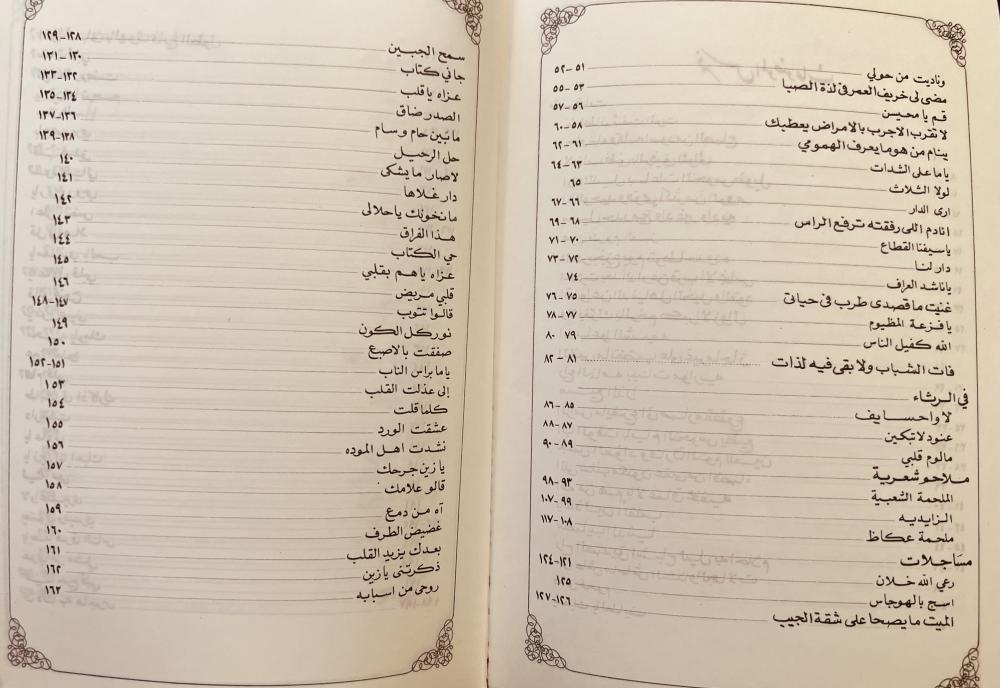 وناديت من حولي ٥١ - ٥٢
مضى لى خريف العمر فى لذة الصبا ٥٣ - ٥٥
قم يا محيسن ٥٦ - ٥٧
لا تقرب الاجرب بالامراض يعطبك ٥٨ - ٦٠
ينام من هو ما يعرف الهمومي ٦١ - ٦٢
ياما على الشدات ٦٣ - ٦٤
لولا الثلاث ٦٥
ارى الدار ٦٦ - ٦٧
انادم اللى رفقته ترفع الراس ٦٨ - ٦٩
ياسيفنا القطاع ٧٠ - ٧١
دار لنا ٧٢ - ٧٣
ياناشد العراف ٧٤
غنيت ما قصدى طرب فى حياتى ٧٥ - ٧٦
يا فزعة المظيوم ٧٧ - ٧٨
الله كفيل الناس ٧٩ - ٨٠
فات الشباب ولا بقى فيه لذات ٨١ - ٨٢
في الرثاء
لا واحسايف ٨٥ - ٨٦
عنود لا تبكين ٨٧ - ٨٨
مالوم قلبي ٨٩ - ٩٠
ملاحم شعرية
الملحمة الشعبية ٩٣ - ٩٨
الزايديه ٩٩ - ١٠٧
ملحمة عكاظ ١٠٨ - ١١٧
مساجلات
رعي الله خلان ١٢١ - ١٢٤
اسج بالهوجاس ١٢٥
الميت ما يصحا على شقة الجيب ١٢٦ - ١٢٧
سمح الجبين ١٢٨ - ١٢٩
جاني كتاب ١٣٠ - ١٣١
عزاه يا قلب ١٣٢ - ١٣٣
الصدر ضاق ١٣٤ - ١٣٥
مابين حام وسام ١٣٦ - ١٣٧
حل الرحيل ١٣٨ - ١٣٩
لاصار ما يشكى ١٤٠
دار غلاها ١٤١
ما نخونك يا حلالى ١٤٢
هذا الفراق ١٤٣
حي الكتاب ١٤٤
عزاه يا هم بقلبي ١٤٥
قلبي مريض ١٤٦
قالوا تتوب ١٤٧ - ١٤٨
نور كل الكون ١٤٩
صفقت بالاصبع ١٥٠
ياما براس الناب ١٥١ - ١٥٢
إلى عذلت القلب ١٥٣
كلما قلت ١٥٤
عشقت الورد ١٥٥
نشدت اهل الموده ١٥٦
يا زين جرحك ١٥٧
قالو علامك ١٥٨
آه من دمع ١٥٩
غضيض الطرف ١٦٠
بعدك يزيد القلب ١٦١
ذكرتنى يا زين ١٦٢
روحى من اسبابه ١٦٣